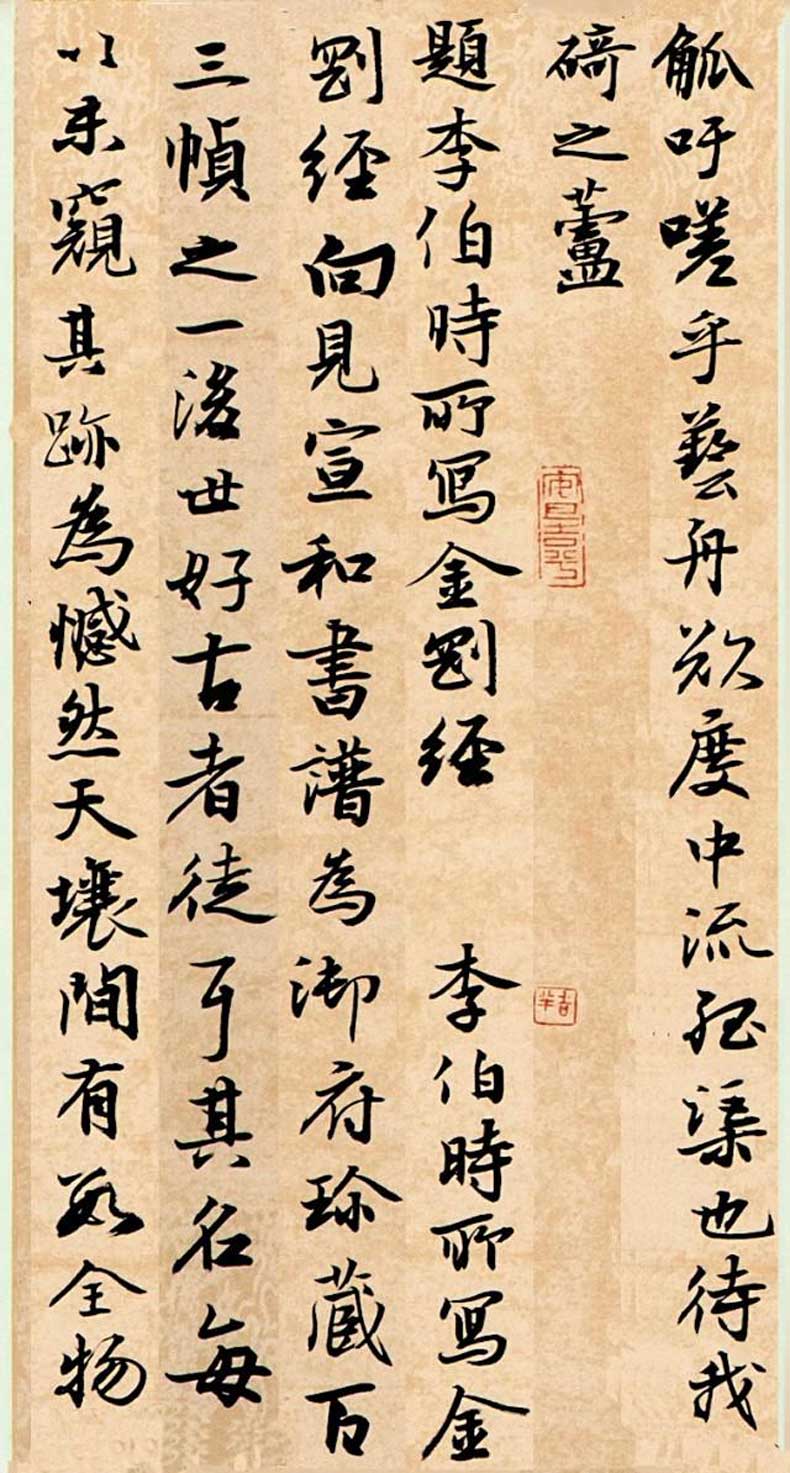 觚吁嗟乎藝舟欲度中流孤渠也待我
碕之蘆
題李伯時所寫金剛經 李伯時所寫金
剛經向見宣和書譜為御府珍藏百
三幀之一後世好古者徒耳其名每
以未窺其跡為憾然天壤間有數全物